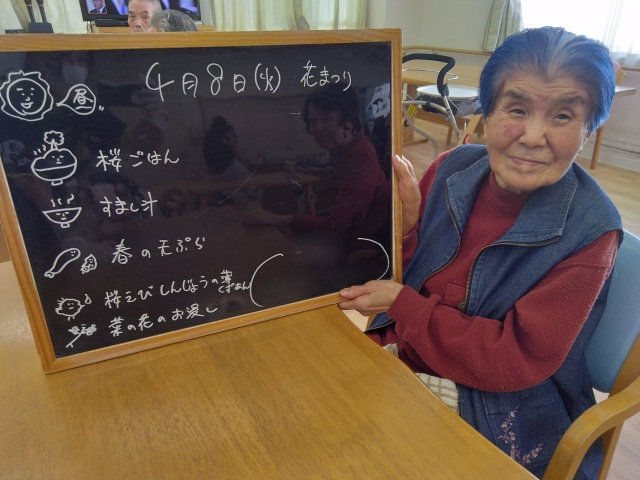 4月8日(火) 花まつり
昼
桜ごはん
すまし汁
春の天ぷら
桜えびしんじょうの葉くずあん
菜の花のお浸し